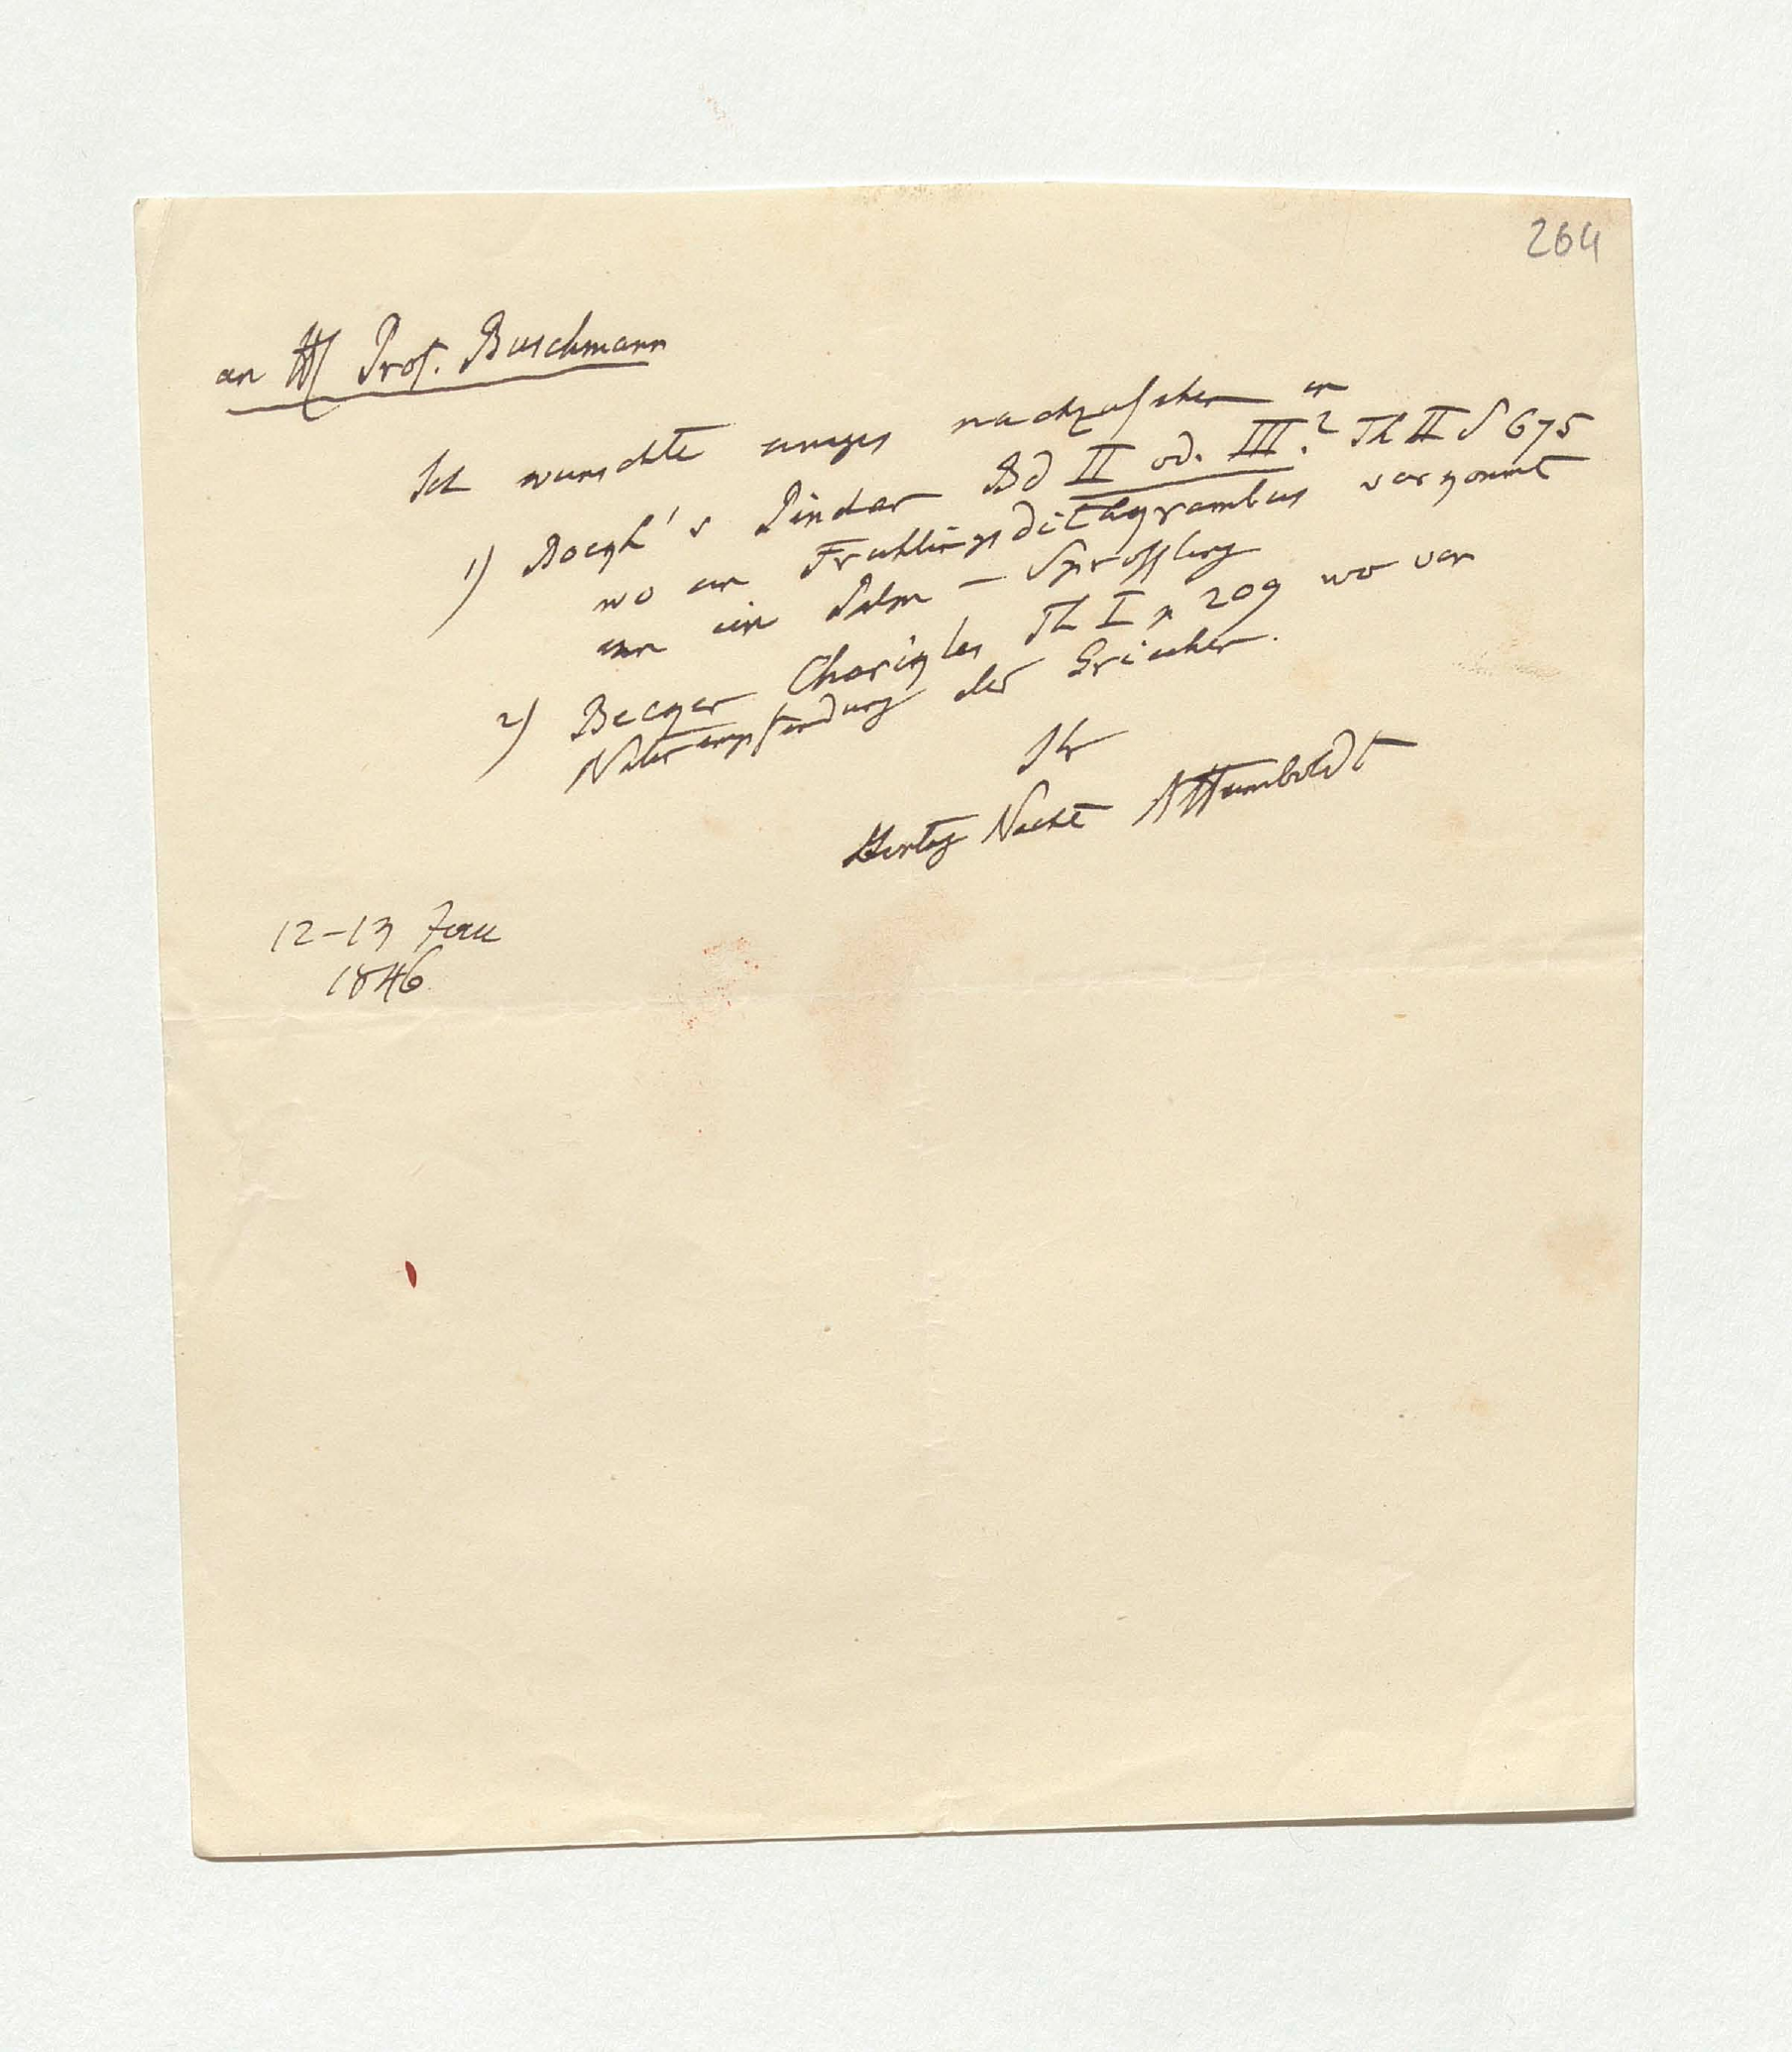 264
an H Prof. Buschmann
Ich wunschte einiges nachzusehen in
1) Boeckh's Pindar Bd II od. III? Th II S 675
wo ein Fruhlingsdithyrambus vorkommt
und ein Palm-Sprossling
2) Becker Charikles Th I p 209 wo von
Naturempfindung der Griechen.
Ihr
AHumboldt
Nacht
12-13 Jan
1846